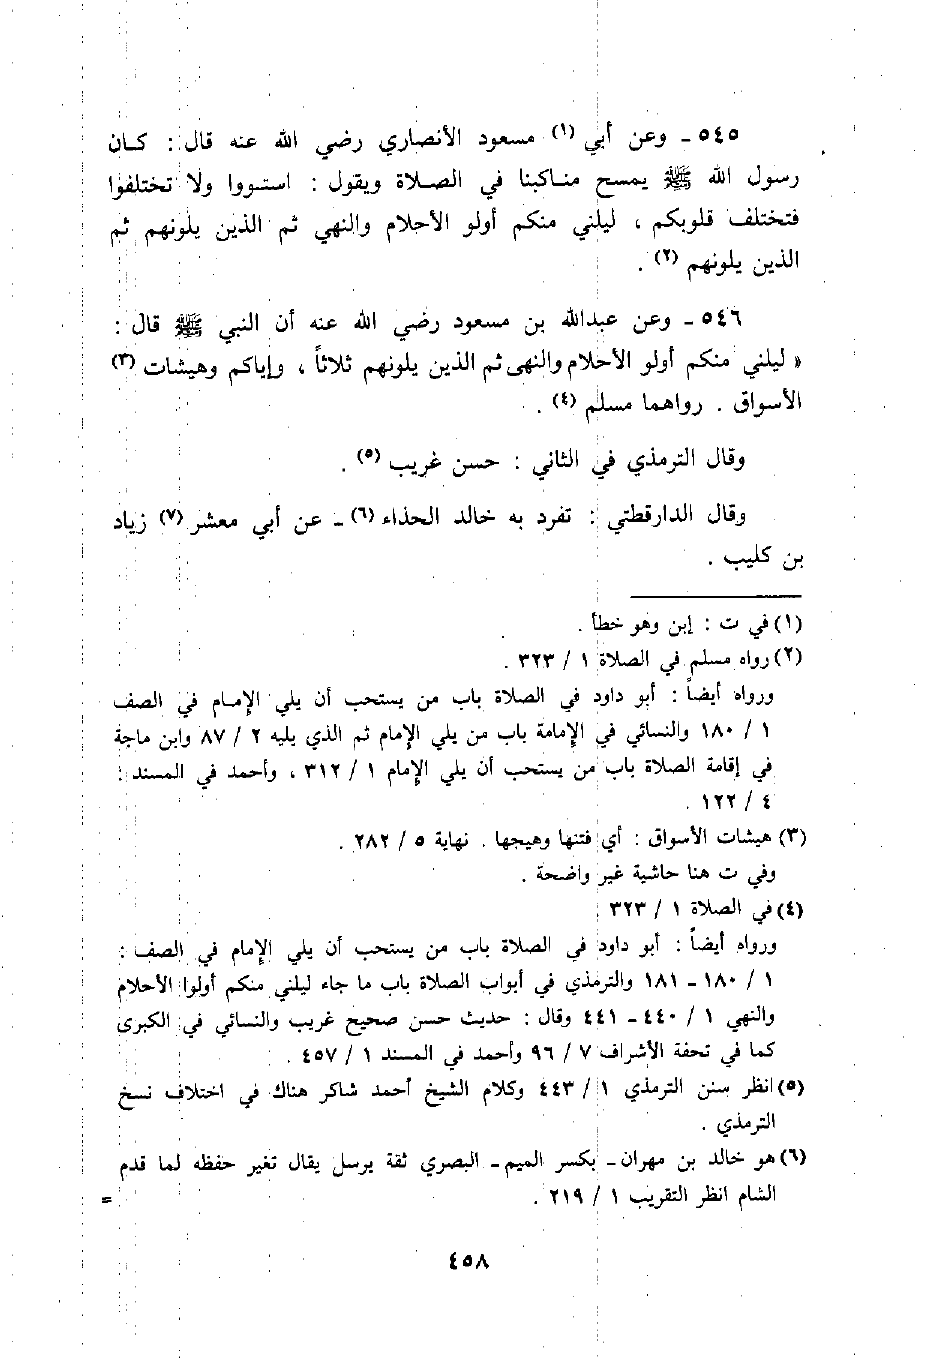 ٥٤٥ ـ وعن أبي (١) مسعود الأنصاري رضي الله عنه قال : كـان
رسول الله ﷺ يمسح منـاكبنا في الصـلاة ويقول : استـووا ولا تختلفوا
فتختلف قلوبكم ، ليلني منكم أولو الأحلام والنهي ثم الذين يلونهم ثم
الذين يلونهم (٢) .
٥٤٦ ـ وعن عبدالله بن مسعود رضي الله عنه أن النبي ﷺ قال :
« ليلني منكم أولو الأحلام والنهى ثم الذين يلونهم ثلاثاً ، وإياكم وهيشات (٣)
الأسواق . رواهما مسلم (٤) .
وقال الترمذي في الثاني : حسن غريب (٥) .
وقال الدارقطتي : تفرد به خالد الحذاء (٦) ـ عن أبي معشر (٧) زياد
بن كليب .
(١) في ت : إبن وهو خطأ .
(٢) رواه مسلم في الصلاة ١ / ٣٢٣ .
ورواه أيضاً : أبو داود في الصلاة باب من يستحب أن يلي الإمـام في الصف
١ / ١٨٠ والنسائي في الإمامة باب من يلي الإمام ثم الذي يليه ٢ / ٨٧ وابن ماجة
في إقامة الصلاة باب من يستحب أن يلي الإمام ١ / ٣١٢ ، وأحمد في المسند :
٤ / ١٢٢ .
(٣) هيشات الأسواق : أي فتنها وهيجها . نهاية ٥ / ٢٨٢ .
وفي ت هنا حاشية غير واضحة .
(٤) في الصلاة ١ / ٣٢٣
ورواه أيضاً : أبو داود في الصلاة باب من يستحب أن يلي الإمام في الصف :
١ / ١٨٠ ـ ١٨١ والترمذي في أبواب الصلاة باب ما جاء ليلني منكم أولوا الأحلام
والنهي ١ / ٤٤٠ ـ ٤٤١ وقال : حديث حسن صحيح غريب والنسائي في الكبرى
كما في تحفة الأشراف ٧ / ٩٦ وأحمد في المسند ١ / ٤٥٧ .
(٥) انظر سنن الترمذي ١ / ٤٤٣ وكلام الشيخ أحمد شاكر هناك في اختلاف نسخ
الترمذي .
(٦) هو خالد بن مهران ـ بكسر الميم ـ البصري ثقة يرسل يقال تغير حفظه لما قدم
الشام انظر التقريب ١ / ٢١٩ . =
٤٥٨